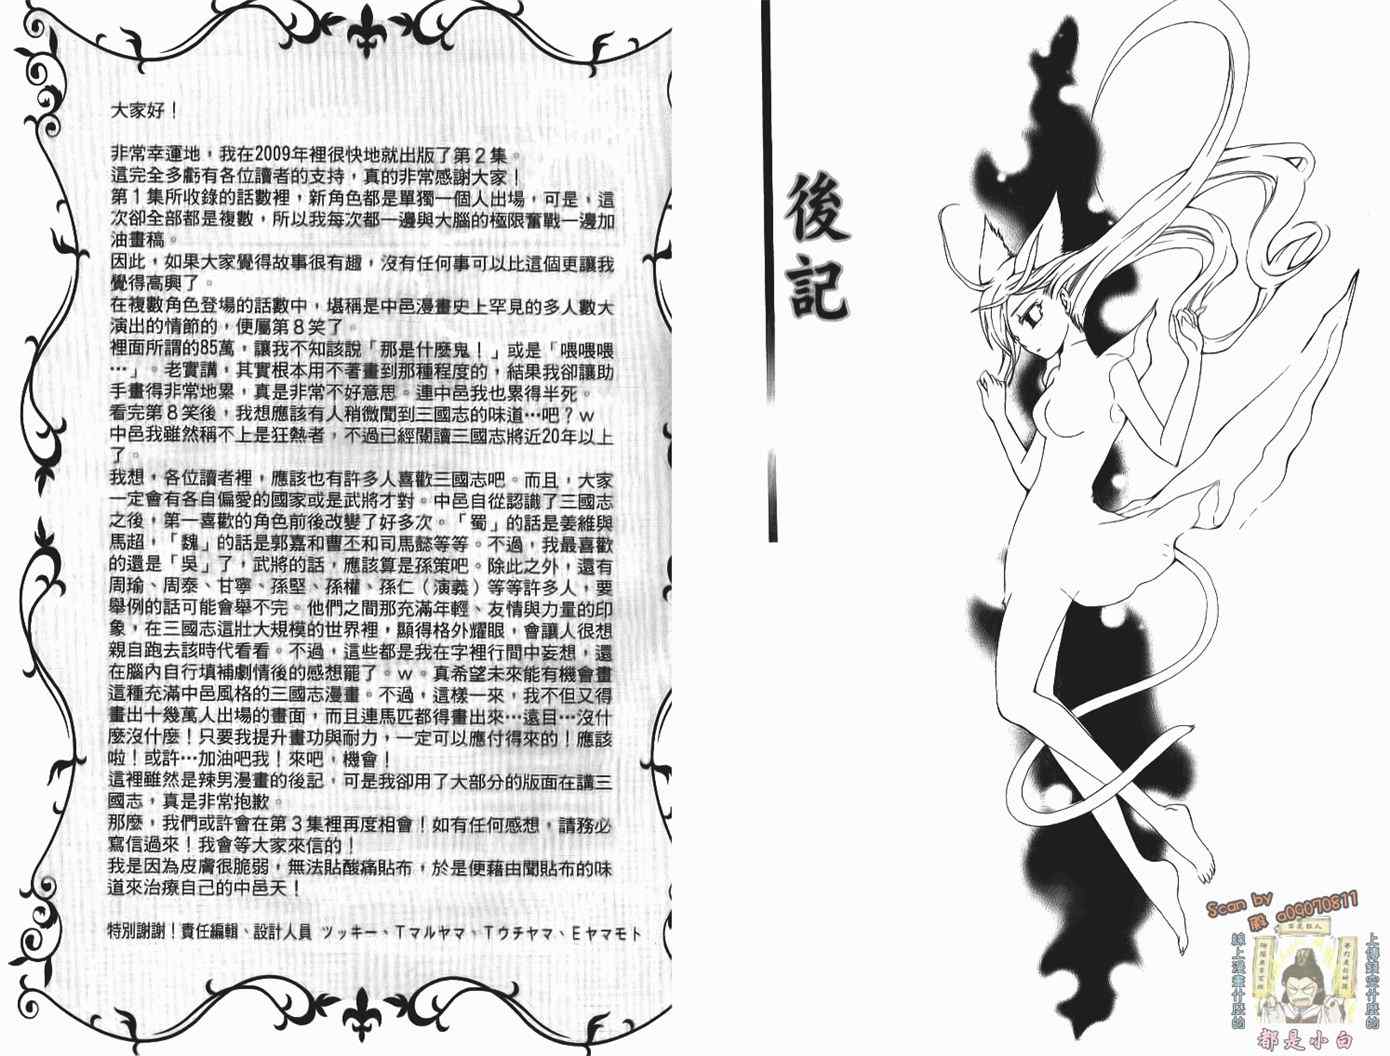 後記
大家好！
非常幸運地，我在2009年裡很快地就出版了第２集。
這完全多虧有各位讀者的支持，真的非常感謝大家！
第１集所收錄的話數裡，新角色都是單獨一個人出場，可是，這
次卻全部都是複數，所以我每次都一邊與大腦的極限奮戰一邊加
油畫稿。
因此，如果大家覺得故事很有趣，沒有任何事可以比這個更讓我
覺得高興了。
在複數角色登場的話數中，堪稱是中邑漫畫史上罕見的多人數大
演出的情節的，便屬第８笑了。
裡面所謂的85萬，讓我不知該說「那是什麼鬼！」或是「喂喂喂
…」。老實講，其實根本用不著畫到那種程度的，結果我卻讓助
手畫得非常地累，真是非常不好意思。連中邑我也累得半死。
看完第８笑後，我想應該有人稍微聞到三國志的味道…吧？ｗ
中邑我雖然稱不上是狂熱者，不過已經閱讀三國志將近20年以上
了。
我想，各位讀者裡，應該也有許多人喜歡三國志吧。而且，大家
一定會有各自偏愛的國家或是武將才對。中邑自從認識了三國志
之後，第一喜歡的角色前後改變了好多次。「蜀」的話是姜維與
馬超，「魏」的話是郭嘉和曹丕和司馬懿等等。不過，我最喜歡
的還是「吳」了，武將的話，應該算是孫策吧。除此之外，還有
周瑜、周泰、甘寧、孫堅、孫權、孫仁（演義）等等許多人，要
舉例的話可能會舉不完。他們之間那充滿年輕、友情與力量的印
象，在三國志這壯大規模的世界裡，顯得格外耀眼，會讓人很想
親自跑去該時代看看。不過，這些都是我在字裡行間中妄想，還
在腦內自行填補劇情後的感想罷了。ｗ。真希望未來能有機會畫
這種充滿中邑風格的三國志漫畫。不過，這樣一來，我不但又得
畫出十幾萬人出場的畫面，而且連馬匹都得畫出來…遠目…沒什
麼沒什麼！只要我提升畫功與耐力，一定可以應付得來的！應該
啦！或許…加油吧我！來吧，機會！
這裡雖然是辣男漫畫的後記，可是我卻用了大部分的版面在講三
國志，真是非常抱歉。
那麼，我們或許會在第３集裡再度相會！如有任何感想，請務必
寫信過來！我會等大家來信的！
我是因為皮膚很脆弱，無法貼酸痛貼布，於是便藉由聞貼布的味
道來治療自己的中邑天！
特別謝謝！責任編輯、設計人員 ツッキー、Ｔマルヤマ、Ｔウチヤマ、Ｅヤマモト
Scan by
殿 a09070811
上傳錄空什麼的
線上漫畫什麼的
都是小白